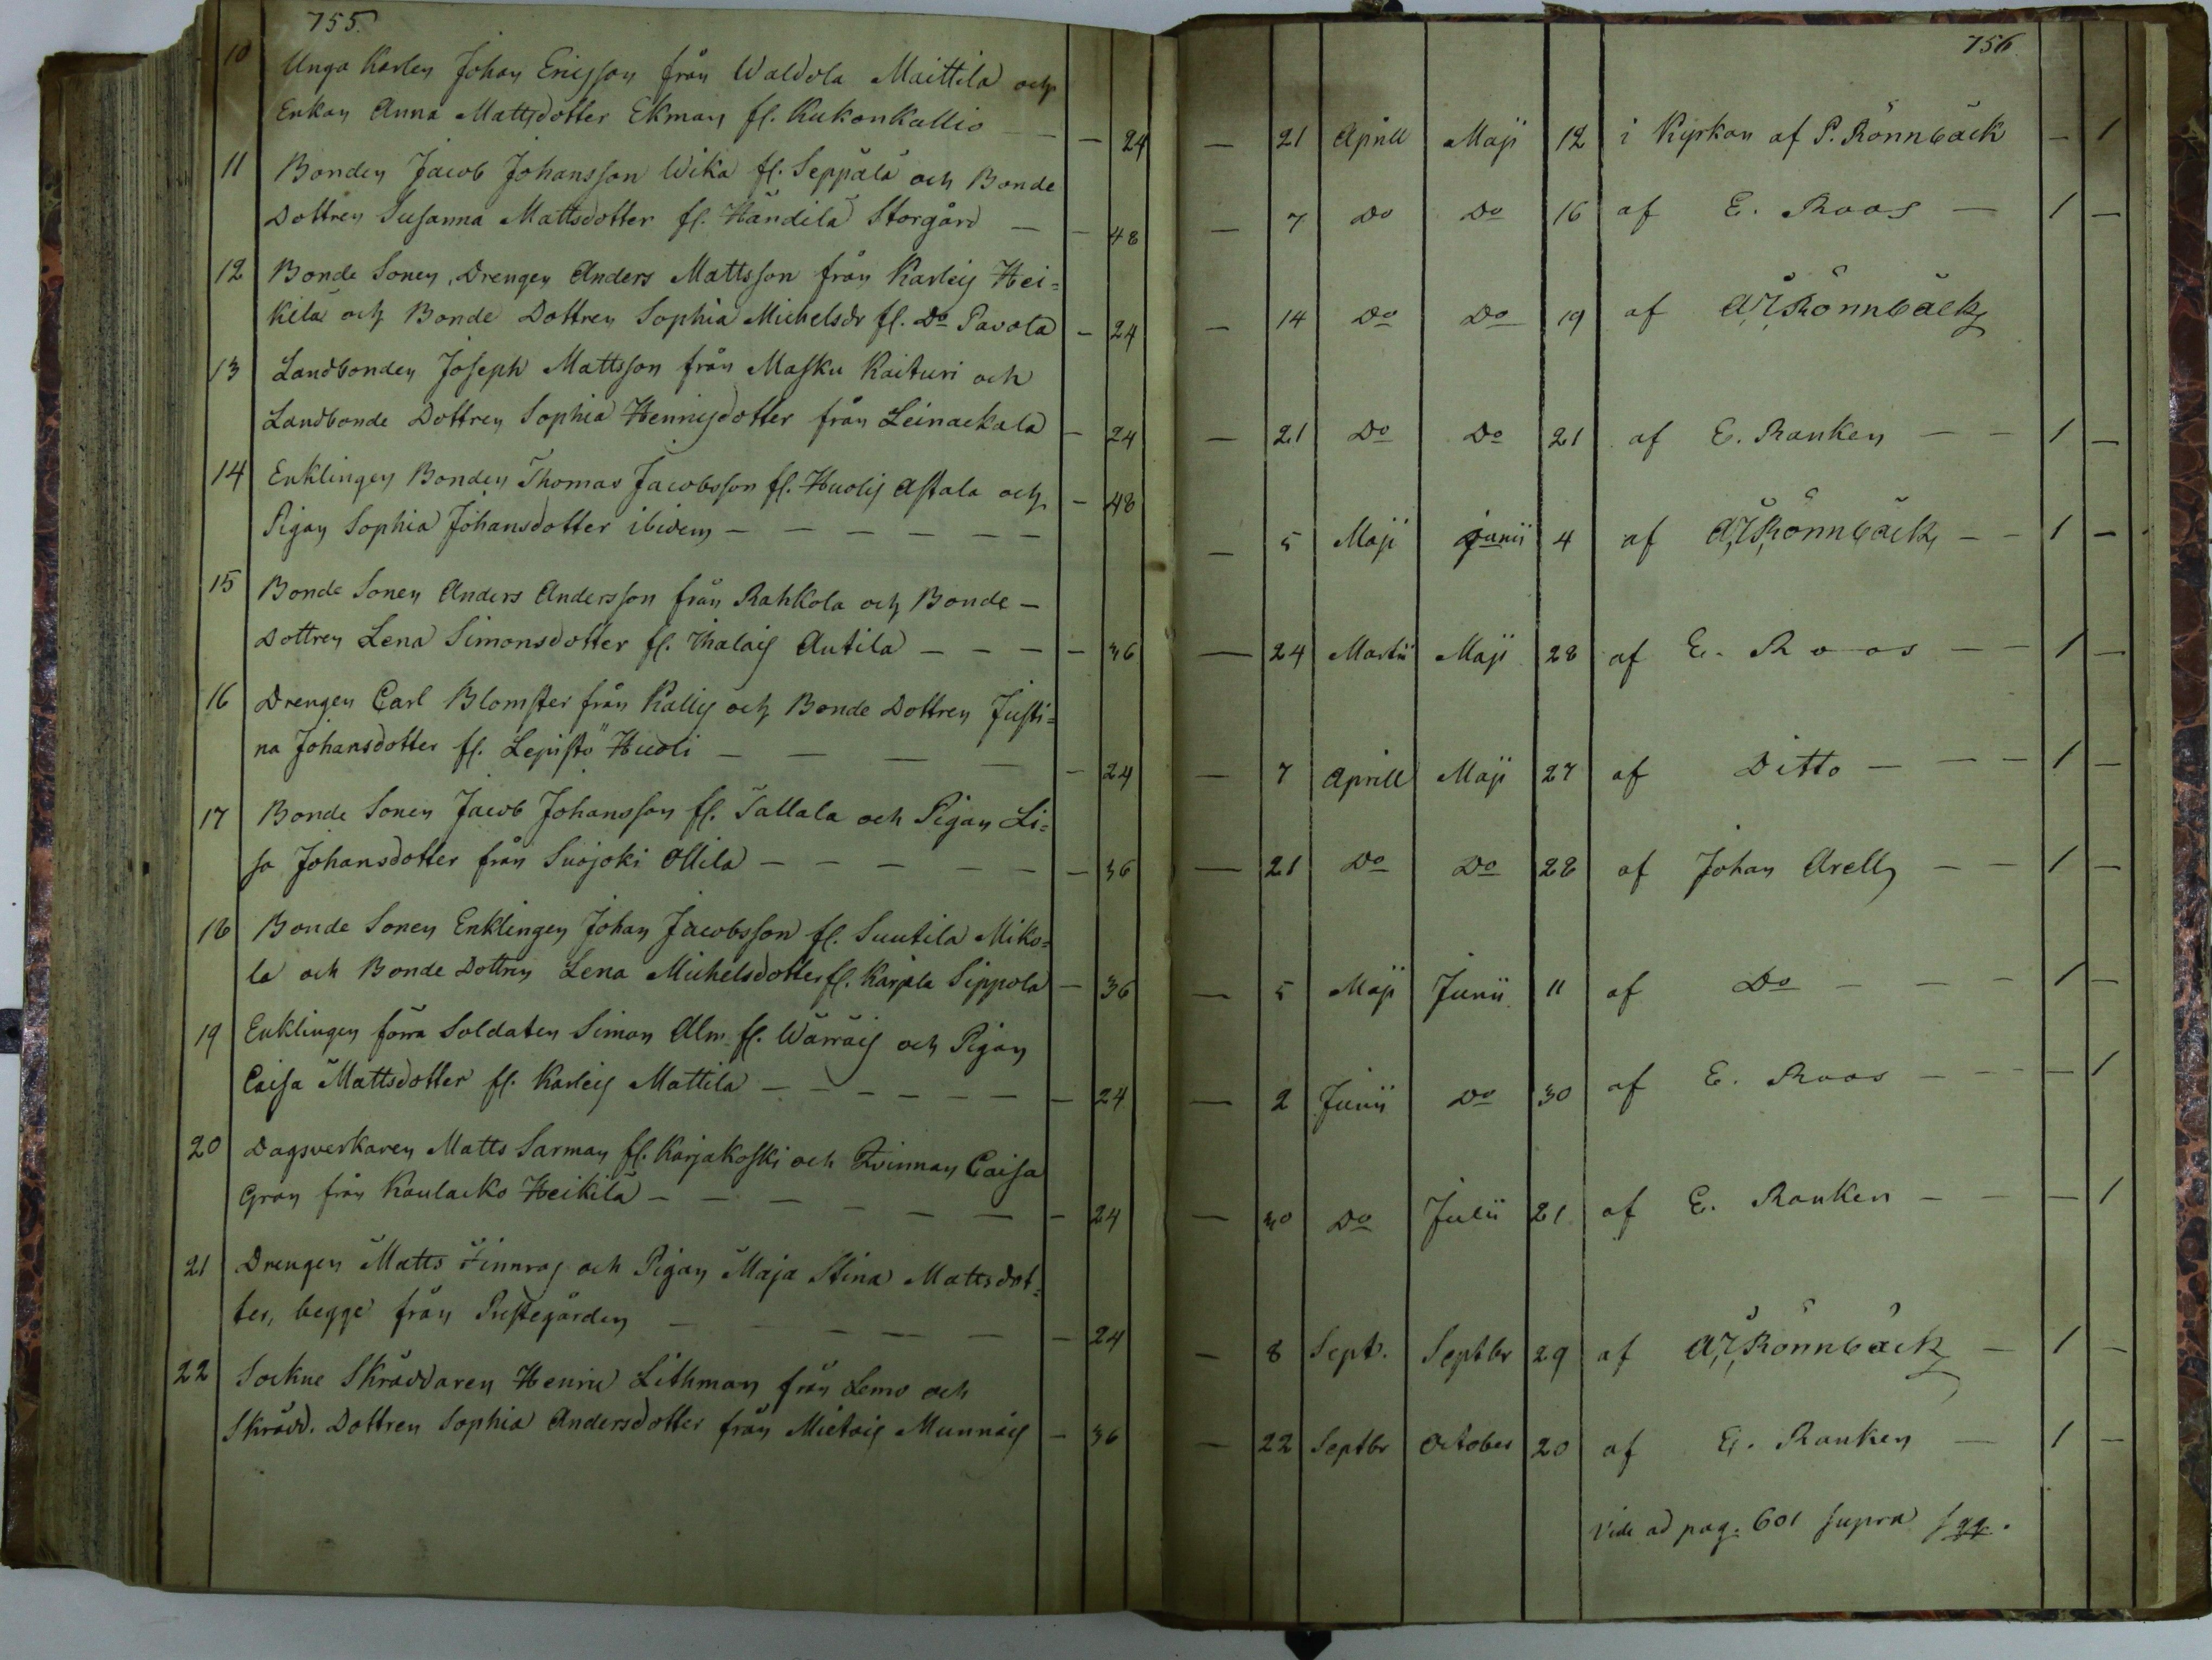 755.
10 Unga Karlen Johan Ericsson från Waldola Maittila och
Enkan Anna Mattsdotter Ekman fl. Kukonkallio — — 24
11 Bonden Jacob Johansson Wika fl. Seppälä och Bonde
Dottren Susanna Mattsdotter fl. Händilä Storgård — — 48
12 Bonde Sonen, Drengen Anders Mattsson från Karleis Hei=
kilä och Bonde Dottren Sophia Michelsdr fl. Do Pavola — 24
13 Landbonden Joseph Mattsson från Masku Kaituri och
Landbonde Dottren Sophia Henricsdotter från Leinackala — 24
14 Enklingen Bonden Thomas Jacobsson fl. Huolis Astala och — 48
Pigan Sophia Johansdotter ibidem — — — — — —
15 Bonde Sonen Anders Andersson från Rahkola och Bonde —
Dottren Lena Simonsdotter fl. Ihalais Autila — — — — 36
16 Drengen Carl Blomster från Kallis och Bonde Dottren Justi=
na Johansdotter fl. Lepistö Huoli — — — — — 24
17 Bonde Sonen Jacob Johansson fl. Tallala och Pigan Li=
sa Johansdotter från Suojoki Ollila — — — — — — 36
18 Bonde Sonen Enklingen Johan Jacobsson fl. Suutila Miko=
la och Bonde Dottren Lena Michelsdotter fl. Karjala Sippola — 36
19 Enklingen förra Soldaten Simon Alm fl. Wärräis och Pigan
Caisa Mattsdotter fl. Karleis Mattila — — — — — — — 24
20 Dagsverkaren Matts Sarman fl. Karjakoski och Qvinnan Caisa
Gran från Kaulacko Heikilä — — — — — — — 24
21 Drengen Matts Finnros och Pigan Maja Stina Mattsdot=
ter, begge från Prestegården — — — — — — 24
22 Sockne Skräddaren Henric Lithman från Lemo och
Skrädd. Dottren Sophia Andersdotter från Mietois Munnäis — 36
756.
— 21 Aprill Maji 12 i Kyrkan af P. Rönnbäck — 1
— 7 Do Do 16 af E. Roos — 1 —
— 14 Do Do 19 af Rönnbäck
— 21 Do Do 21 af E. Ranken — — 1 —
— 5 Maji Junii 4 af Rönnbäck — — 1 —
— 24 Martii Maji 28 af E. Roos — — 1 —
— 7 Aprill Maji 27 af Ditto — — — 1 —
— 21 Do Do 28 af Johan Arell — — 1 —
— 5 Maji Junii 11 af Do — — — 1 —
— 2 Junii Do 30 af E. Roos — — — — 1
— 30 Do Julii 21 af E. Ranken — — — 1
— 8 Sept. Septbr 29 af Rönnbäck — 1 —
— 22 Septbr October 20 af E. Ranken — 1 —
Vide ad pag. 601 supra sqq.